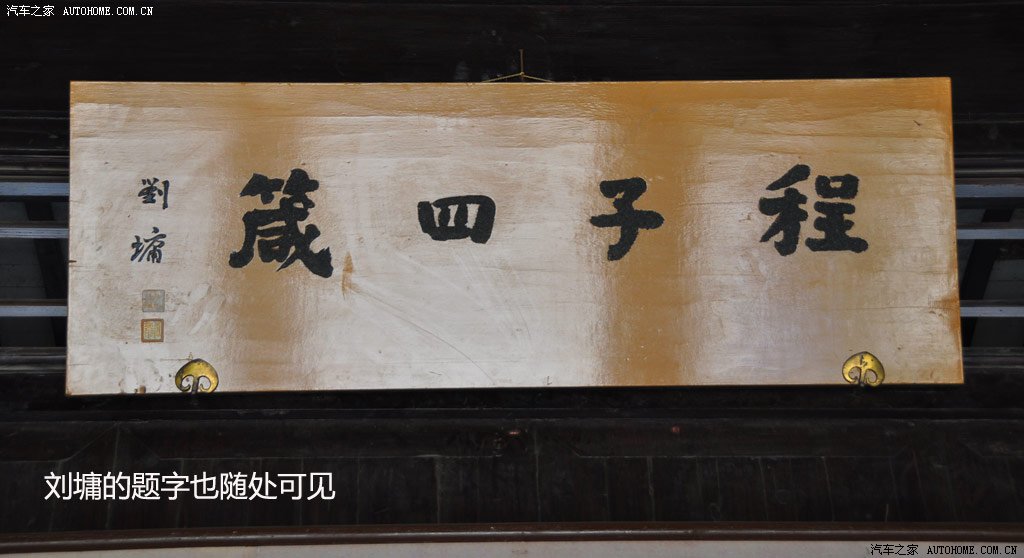 汽车之家 AUTOHOME.COM.CN
程子四箴
劉墉
刘墉的题字也随处可见
汽车之家 AUTOHOME.COM.CN